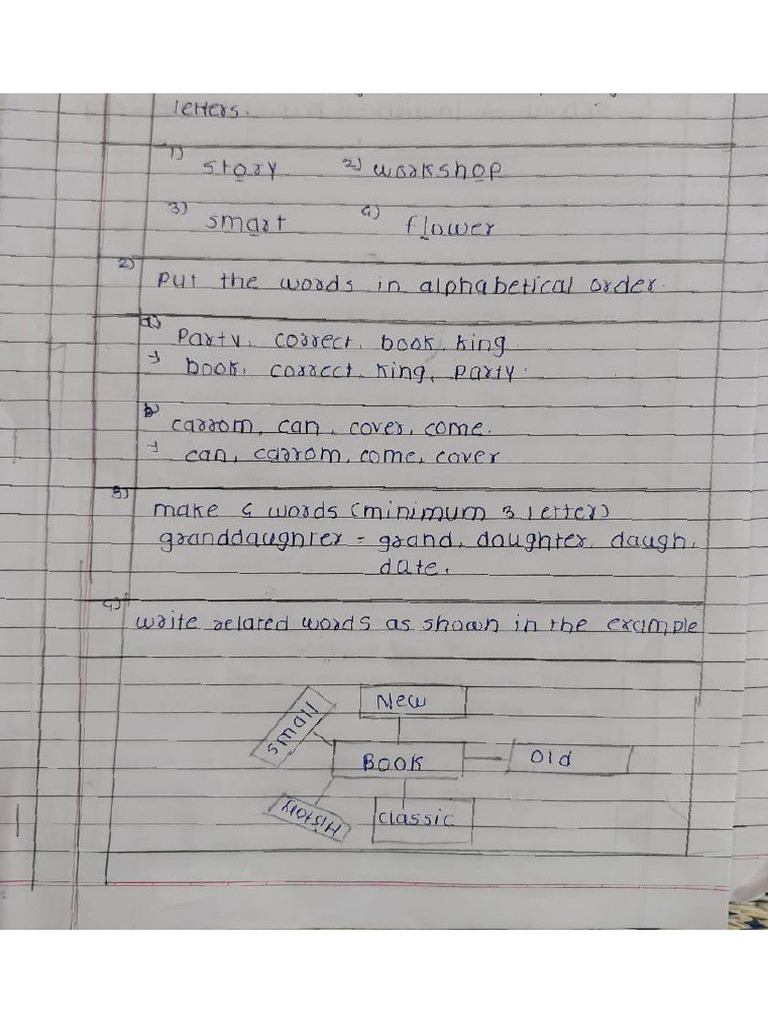 letters.
1) story 2) workshop
3) smart 4) flower
2) Put the words in alphabetical order.
a) Party, correct, book, king
→ book, correct, king, party.
b) carrom, can, cover, come.
→ can, carrom, come, cover
3) make 4 words (minimum 3 letter)
granddaughter = grand, daughter, daugh,
date.
4) write related words as shown in the example
New
Small
Book
Old
History
Classic